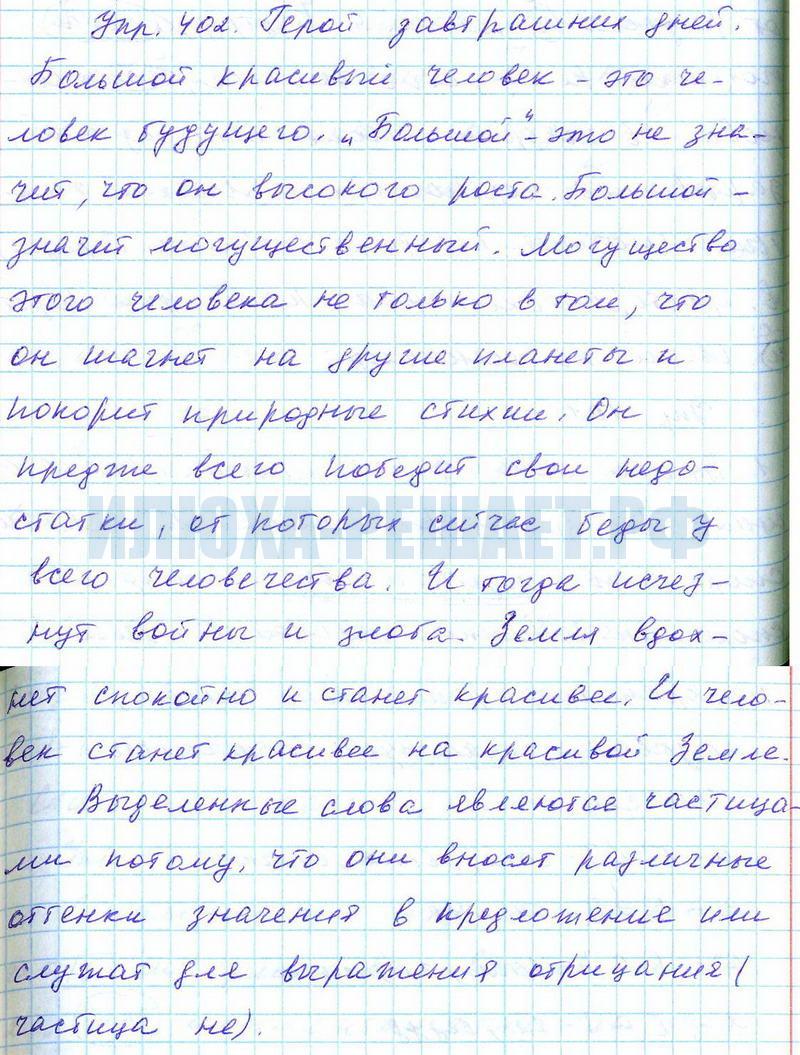 Упр. 402. Герой завтрашних дней.
Большой красивый человек - это че-
ловек будущего. "Большой" - это не зна-
чит, что он высокого роста. Большой -
значит могущественный. Могущество
этого человека не только в том, что
он шагнет на другие планеты и
покорит природные стихии. Он
прежде всего победит свои недо-
статки, от которых сейчас беды у
ИЛЮХА-РЕШАЕТ.РФ
всего человечества. И тогда исчез-
нут войны и злоба. Земля вдох-
нет спокойно и станет красивее. И чело-
век станет красивее на красивой Земле.
Выделенные слова являются частица-
ми потому, что они вносят различные
оттенки значения в предложение или
служат для выражения отрицания (
частица не).